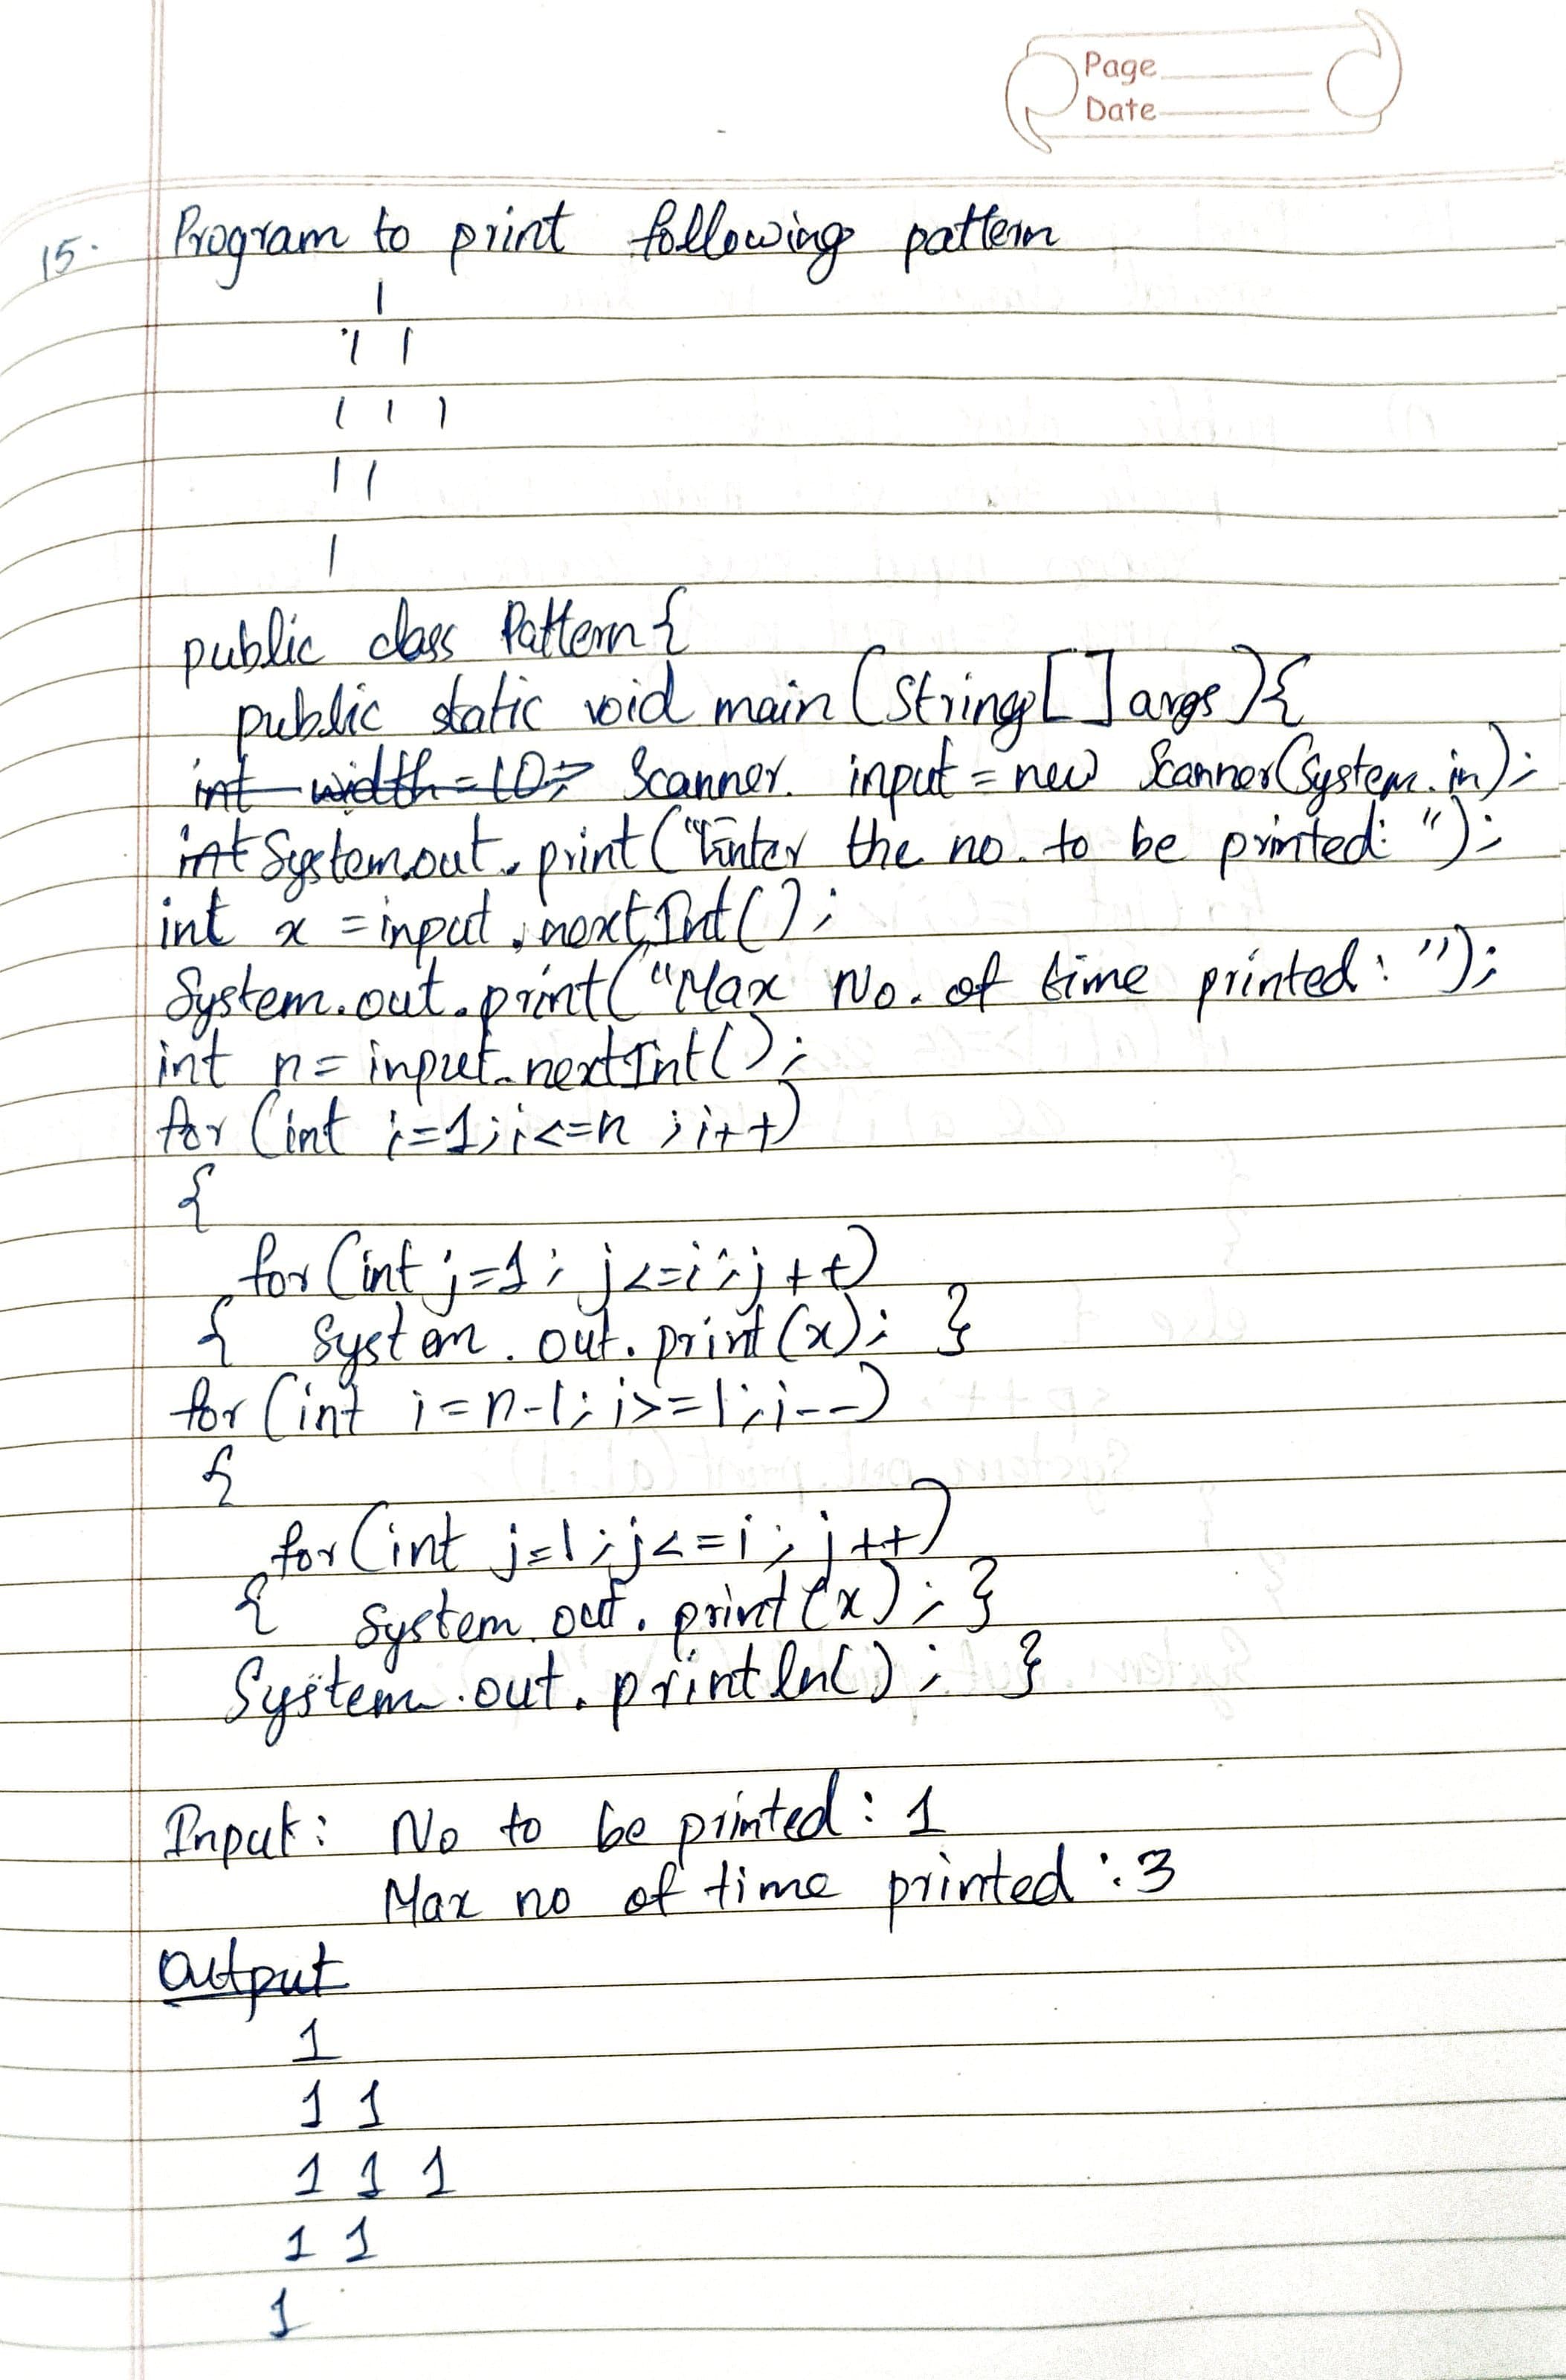 Page
Date
15. Program to print following pattern
1
1 1
1 1 1
1 1
1
public class Pattern {
public static void main (String [ ] args ) {
int width = 10; Scanner. input = new Scanner(System.in);
int System.out.print ("Enter the no. to be printed: ");
int x = input.nextInt ();
System.out.print("Max No. of time printed: ");
int n = input.nextInt();
for (int i=1; i<=n ; i++)
{
for (int j=1; j<=i; j++)
{ System.out.print(x); }
for (int i = n-1; i>=1; i--)
{
for (int j=1; j<=i; j++)
{ System.out.print(x); }
System.out.println(); }
Input: No to be printed: 1
Max no of time printed : 3
Output
1
1 1
1 1 1
1 1
1